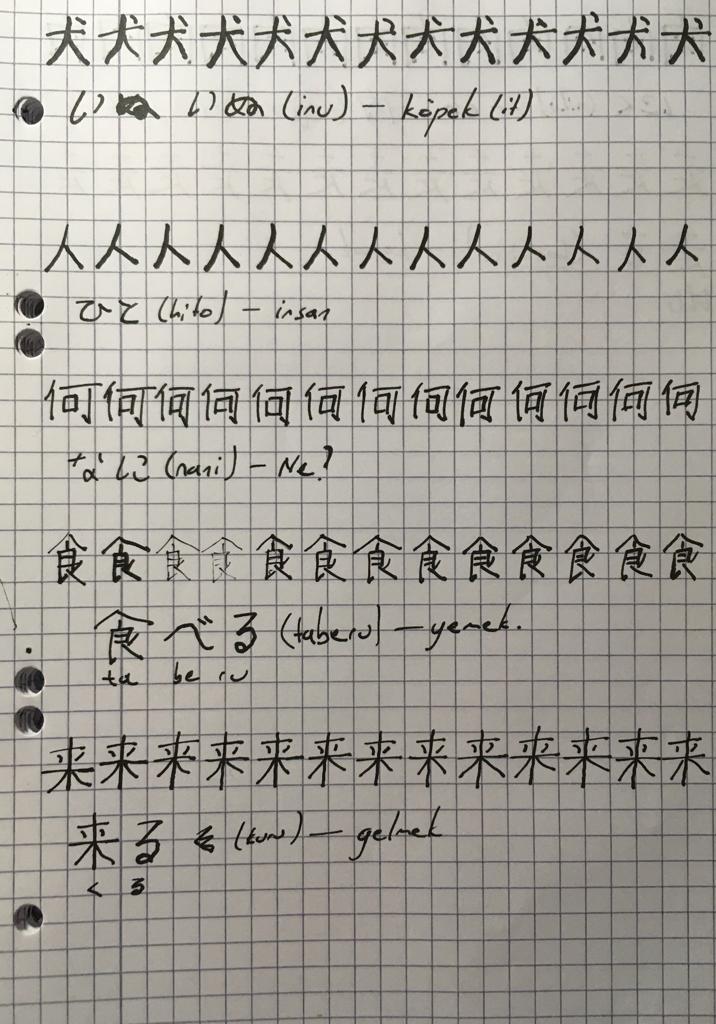 犬 犬 犬 犬 犬 犬 犬 犬 犬 犬 犬 犬 犬
い いぬ (inu) – köpek (it)
人 人 人 人 人 人 人 人 人 人 人 人 人
ひと (hito) – insan
何 何 何 何 何 何 何 何 何 何 何 何 何
なに (nani) – Ne?
食 食 食 食 食 食 食 食 食 食 食 食 食
食べる (taberu) – yemek.
ta be ru
来 来 来 来 来 来 来 来 来 来 来 来 来
来る (kuru) – gelmek
く る